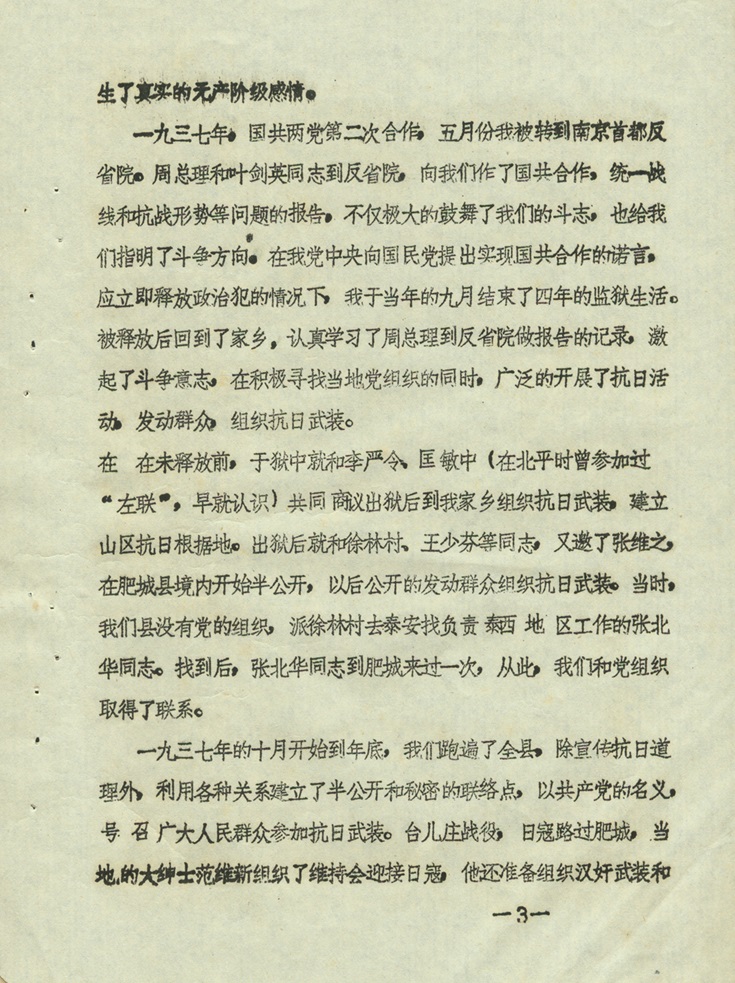 生了真实的无产阶级感情。
一九三七年，国共两党第二次合作，五月份我被转到南京首都反
省院。周总理和叶剑英同志到反省院，向我们作了国共合作，统一战
线和抗战形势等问题的报告，不仅极大的鼓舞了我们的斗志，也给我
们指明了斗争方向。在我党中央向国民党提出实现国共合作的诺言，
应立即释放政治犯的情况下，我于当年的九月结束了四年的监狱生活。
被释放后回到了家乡，认真学习了周总理到反省院做报告的记录，激
起了斗争意志，在积极寻找当地党组织的同时，广泛的开展了抗日活
动，发动群众，组织抗日武装。
在 在未释放前，于狱中就和李严令、匡敏中（在北平时曾参加过
“左联”，早就认识）共同商议出狱后到我家乡组织抗日武装，建立
山区抗日根据地。出狱后就和徐林村、王少芬等同志，又邀了张维之，
在肥城县境内开始半公开，以后公开的发动群众组织抗日武装。当时，
我们县没有党的组织，派徐林村去泰安找负责泰西地区工作的张北
华同志。找到后，张北华同志到肥城来过一次，从此，我们和党组织
取得了联系。
一九三七年的十月开始到年底，我们跑遍了全县，除宣传抗日道
理外，利用各种关系建立了半公开和秘密的联络点，以共产党的名义，
号召广大人民群众参加抗日武装。台儿庄战役，日寇路过肥城，当
地的大绅士范维新组织了维持会迎接日寇，他还准备组织汉奸武装和
—3—